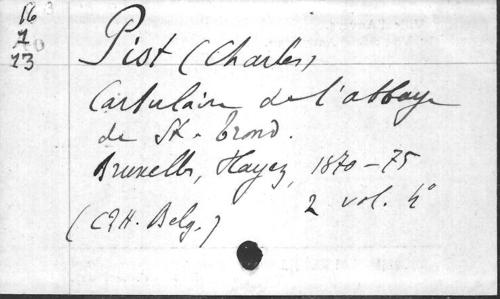 16
1
13
Pist (Charles)
Cartulaire de l'abbaye
de St-Trond.
Bruxelles, Hayez, 1870-75
2 vol. 4°
(CRH. Belg.)